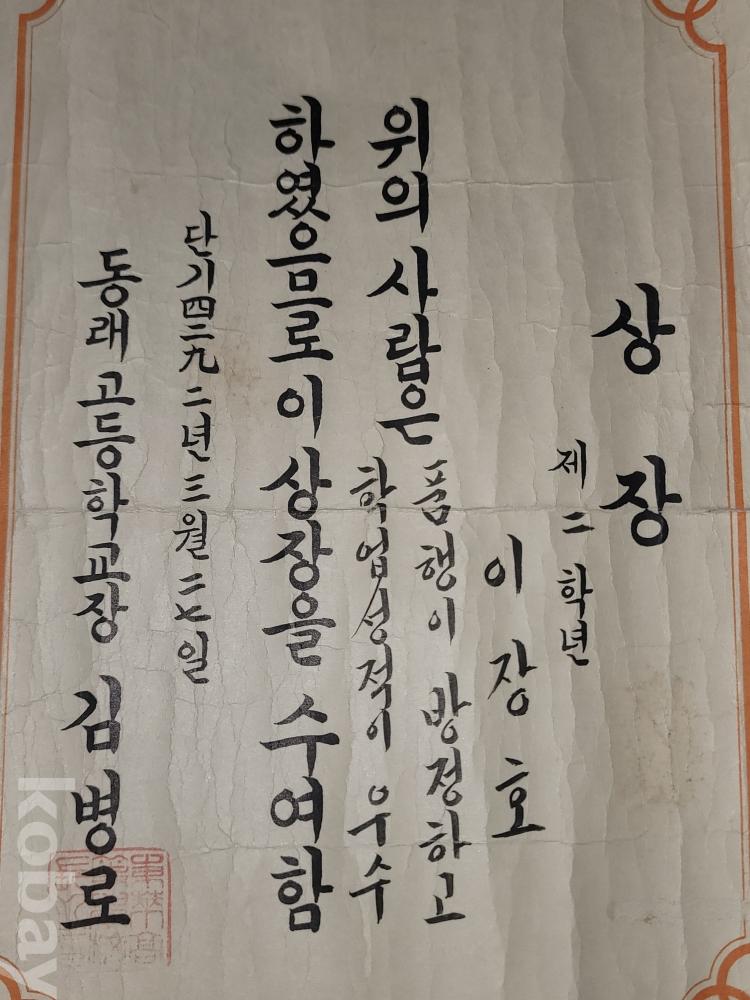 상장
제二학년
이장호
위의 사람은 품행이 방정하고
학업성적이 우수
하였으므로 이 상장을 수여함
단기四二九二년 三월 二七일
동래고등학교장 김병로
kobay